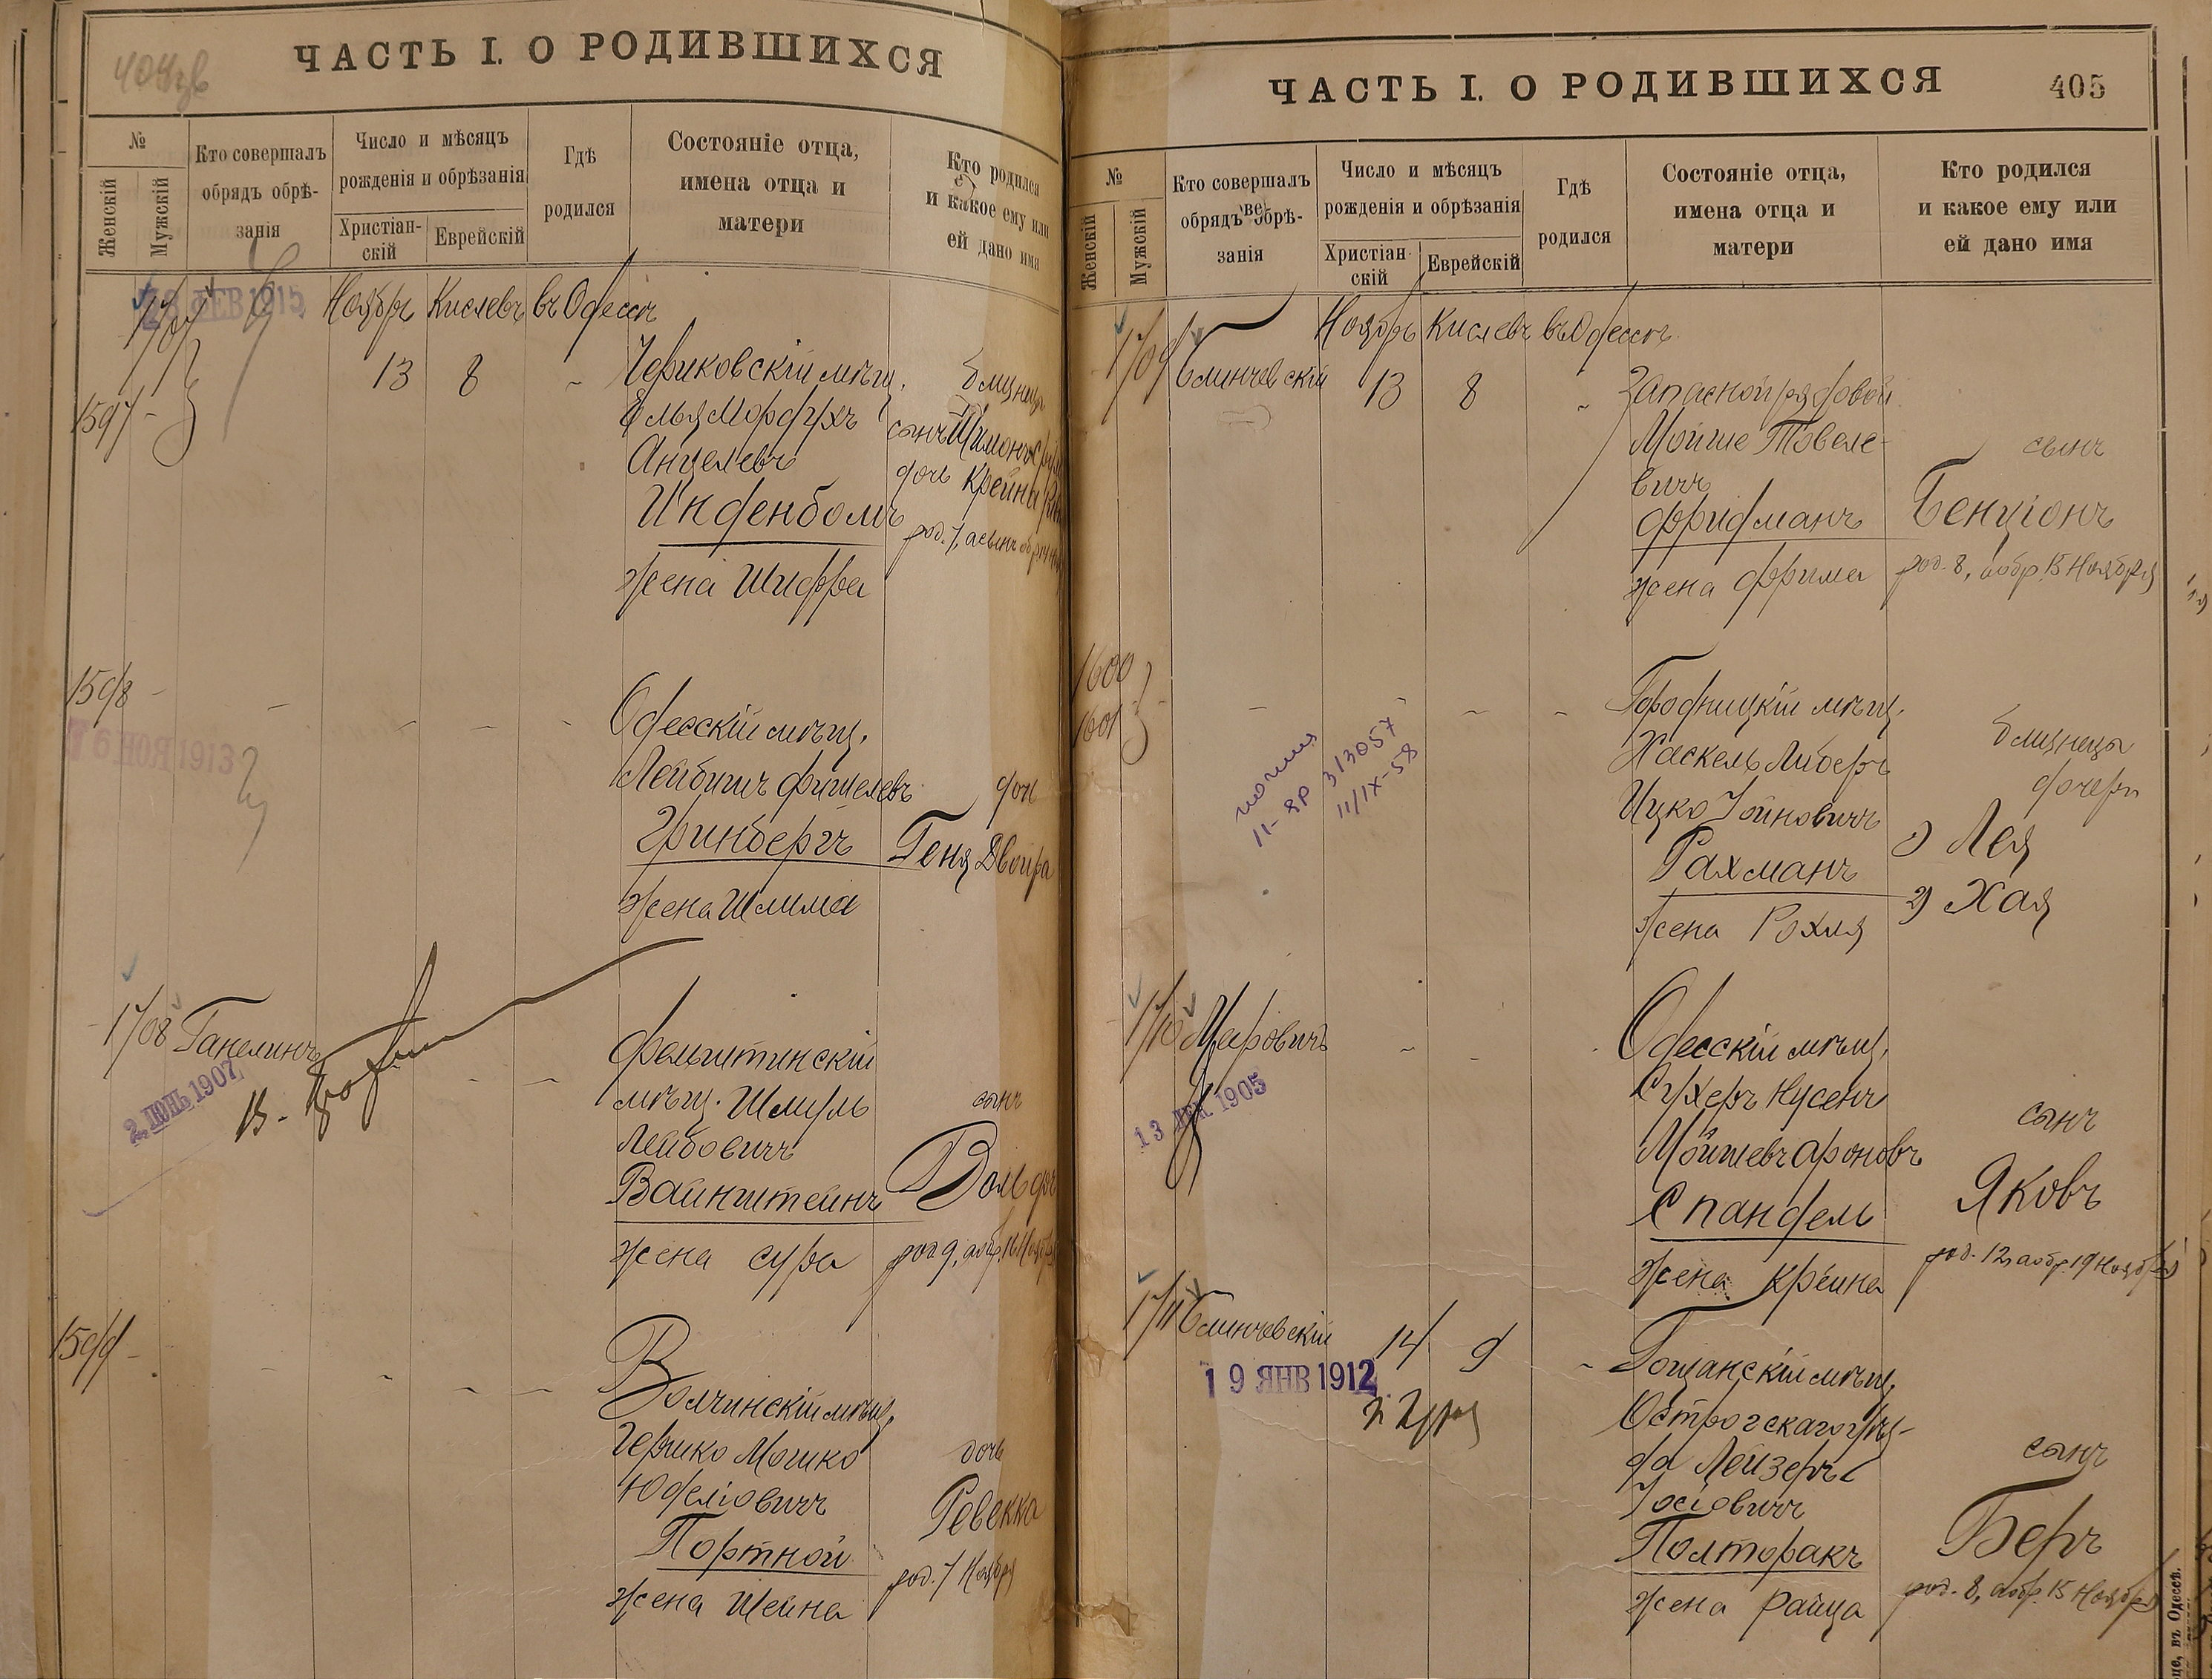 ЧАСТЬ I. О РОДИВШИХСЯ
№
Женскій
Мужскій
Кто совершалъ
обрядъ обрѣ-
занія
Число и мѣсяцъ
рожденія и обрѣзанія
Христіан-
скій
Еврейскій
Гдѣ
родился
Состояніе отца,
имена отца и
матери
Кто родился
и какое ему или
ей дано имя
1707
1597
28 ФЕВ 1915
Ноябрь Кислевъ въ Одессѣ
13 8
Чериковскій мѣщ.
Элья Мордухъ
Анцелевъ
Инденбомъ
жена Шифра
близнецы
сынъ Шимонъ
дочь Крейна
род. 7, а сынъ обр. 14
1598
6 ИЮН 1913
Одесскій мѣщ.
Лейбишъ Фишелевъ
Гринбергъ
жена Шлима
дочь
Геня Двойра
1708 Ганелинъ
2 ІЮНЬ 1907
Фельштинскій
мѣщ. Шмуль
Лейбовичъ
Вайнштейнъ
жена Сура
сынъ
Вольфъ
род 9, а обр. 16 Ноября
1599
Волчинскій мѣщ.
Гершко Мошко
Юделіовичъ
Портной
жена Шейна
дочь
Ревекка
род. 7 Ноября
ЧАСТЬ I. О РОДИВШИХСЯ
405
№
Женскій
Мужскій
Кто совершалъ
обрядъ обрѣ-
занія
Число и мѣсяцъ
рожденія и обрѣзанія
Христіан-
скій
Еврейскій
Гдѣ
родился
Состояніе отца,
имена отца и
матери
Кто родился
и какое ему или
ей дано имя
1709
Блинчевскій
Ноябрь Кислевъ въ Одессѣ
13 8
Запасной рядовой
Мойше Товеле-
вичъ
Фридманъ
жена Фрима
сынъ
Бенціонъ
род. 8, а обр. 15 Ноября
1600
1601
II-ЯР 313057
11/IX-58
Городницкій мѣщ.
Хаскель Либеръ
Ицко Іойновичъ
Рахманъ
жена Рохля
близнецы
дочери
1) Лея
2) Хая
1710 Маровичъ
13 ДЕК 1905
Одесскій мѣщ.
Сухеръ Нусенъ
Мойшевъ Ароновъ
Спандель
жена Крейна
сынъ
Яковъ
род. 12, а обр. 19 Ноября
1711 Блинчевскій
14 9
19 ЯНВ 1912
Гощанскій мѣщ.
Острогскаго уѣз-
да Лейзеръ
Іосіовичъ
Полторакъ
жена Райца
сынъ
Беръ
род. 8, а обр. 15 Ноября
въ Одессѣ.